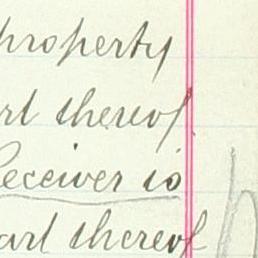 property
art thereof
Receiver is
part thereof